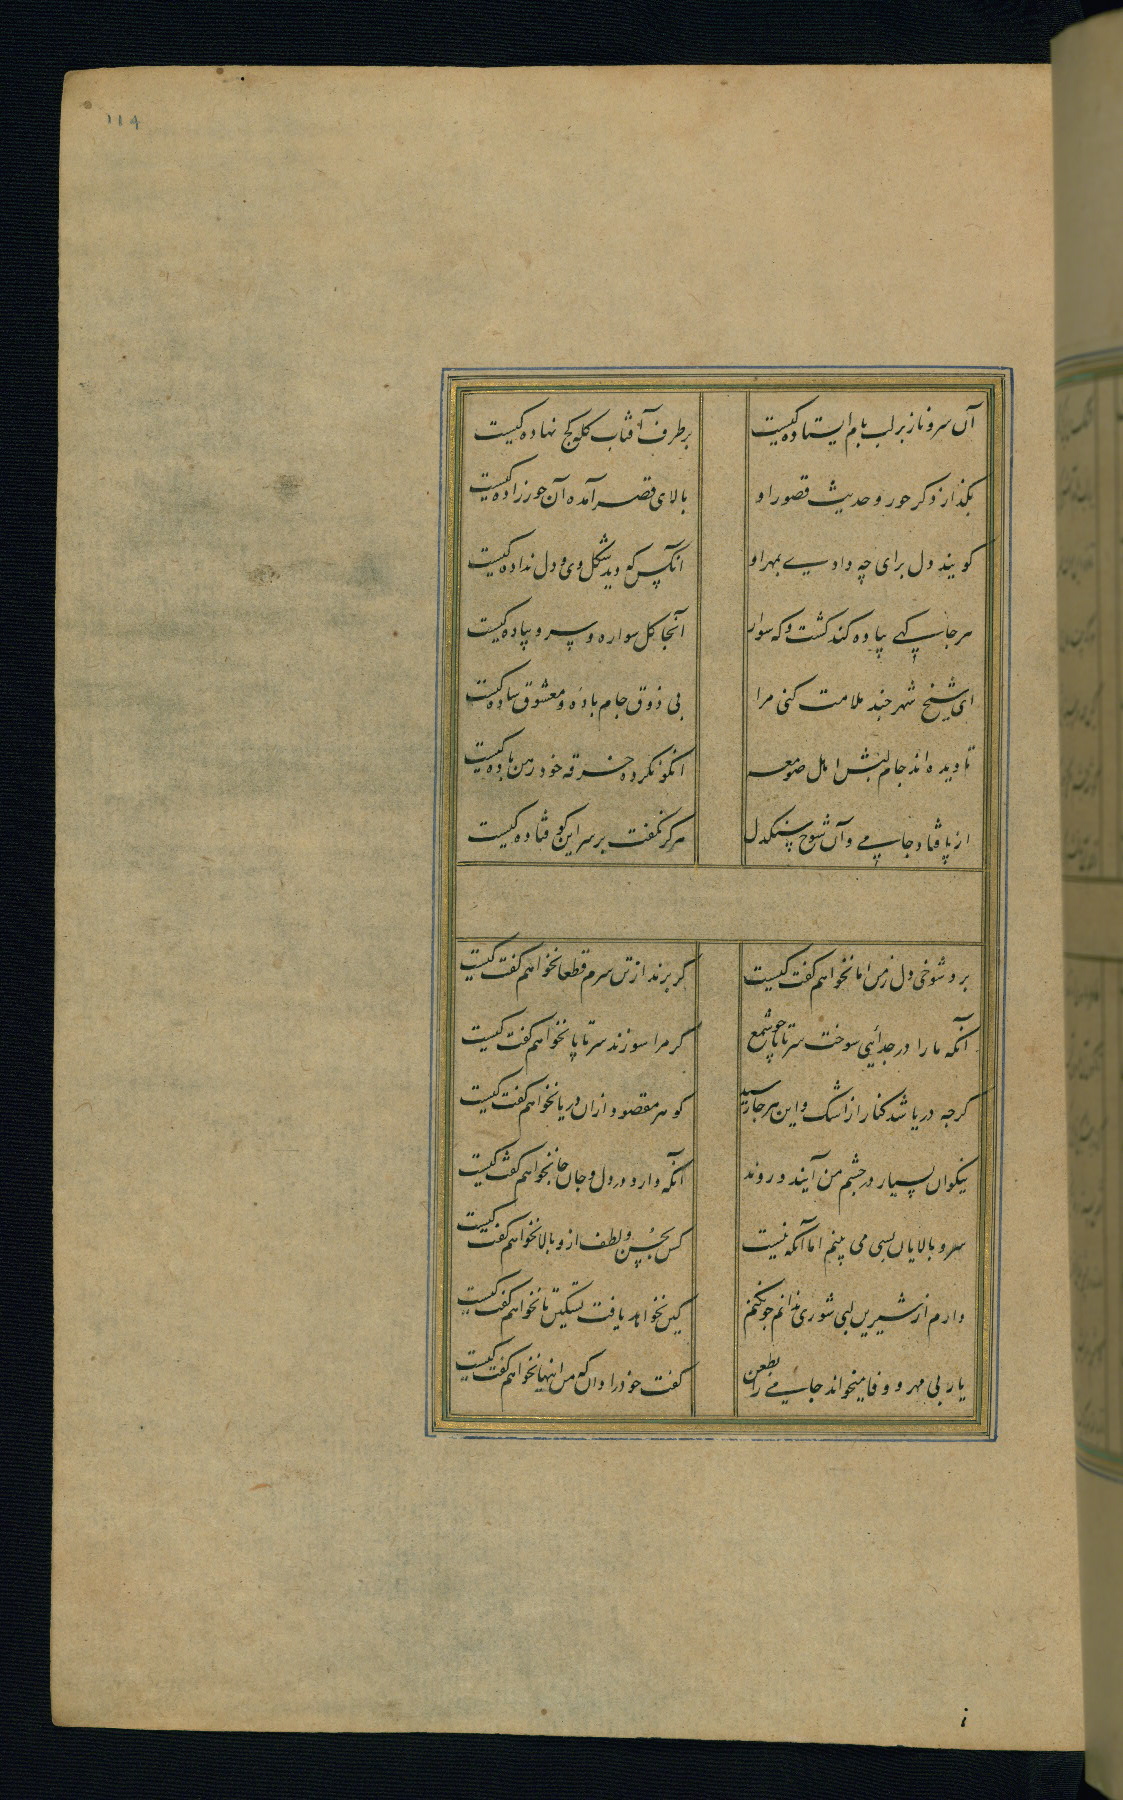 ۱۱۴
آن سرو ناز بر لب بام ایستاده کیست
بر طرف آفتاب کله کج نهاده کیست
بکذار ذکر حور و حدیث قصور او
بالای قصر آمده آن حورزاده کیست
کویند دل برای چه دادی بمهر او
آنکس که دید شکل وی و دل نداده کیست
هر جا پیاده کند کشت و که سوار
آنجا کل سواره و سرو پیاده کیست
ای شیخ شهر چند ملامت کنی مرا
بی ذوق جام باده و معشوق ساده کیست
تا دیده اند جام لبش اهل صومعه
آنکو نکرده خرقه خود رهن باده کیست
از پا فتاد جامی و آن شوخ سنکدل
هرکز نکفت بر سر این کو فتاده کیست
برد شوخی دل ز من اما نخواهم کفت کیست
کر برند از تن سرم قطعا نخواهم کفت کیست
آنکه ما را در جدائی سوخت سر تا پا چو شمع
کر مرا سوزند سر تا پا نخواهم کفت کیست
کرچه دریا شد کنار از اشک و این هر جا رسید
کوهر مقصود ازان دریا نخواهم کفت کیست
نیکوان بسیار در چشم من آیند و روند
آنکه دارد در دل و جان جا نخواهم کفت کیست
سرو بالایان بسی می بینم اما آنکه نیست
کس بحسن و لطف ازو بالا نخواهم کفت کیست
دارم از شیرین لبی شوری ندانم چون کنم
کین نخواهد یافت تسکین تا نخواهم کفت کیست
یار بی مهر و وفا میخواند جامی را بطعن
کفت خود را دان که من اینها نخواهم کفت کیست